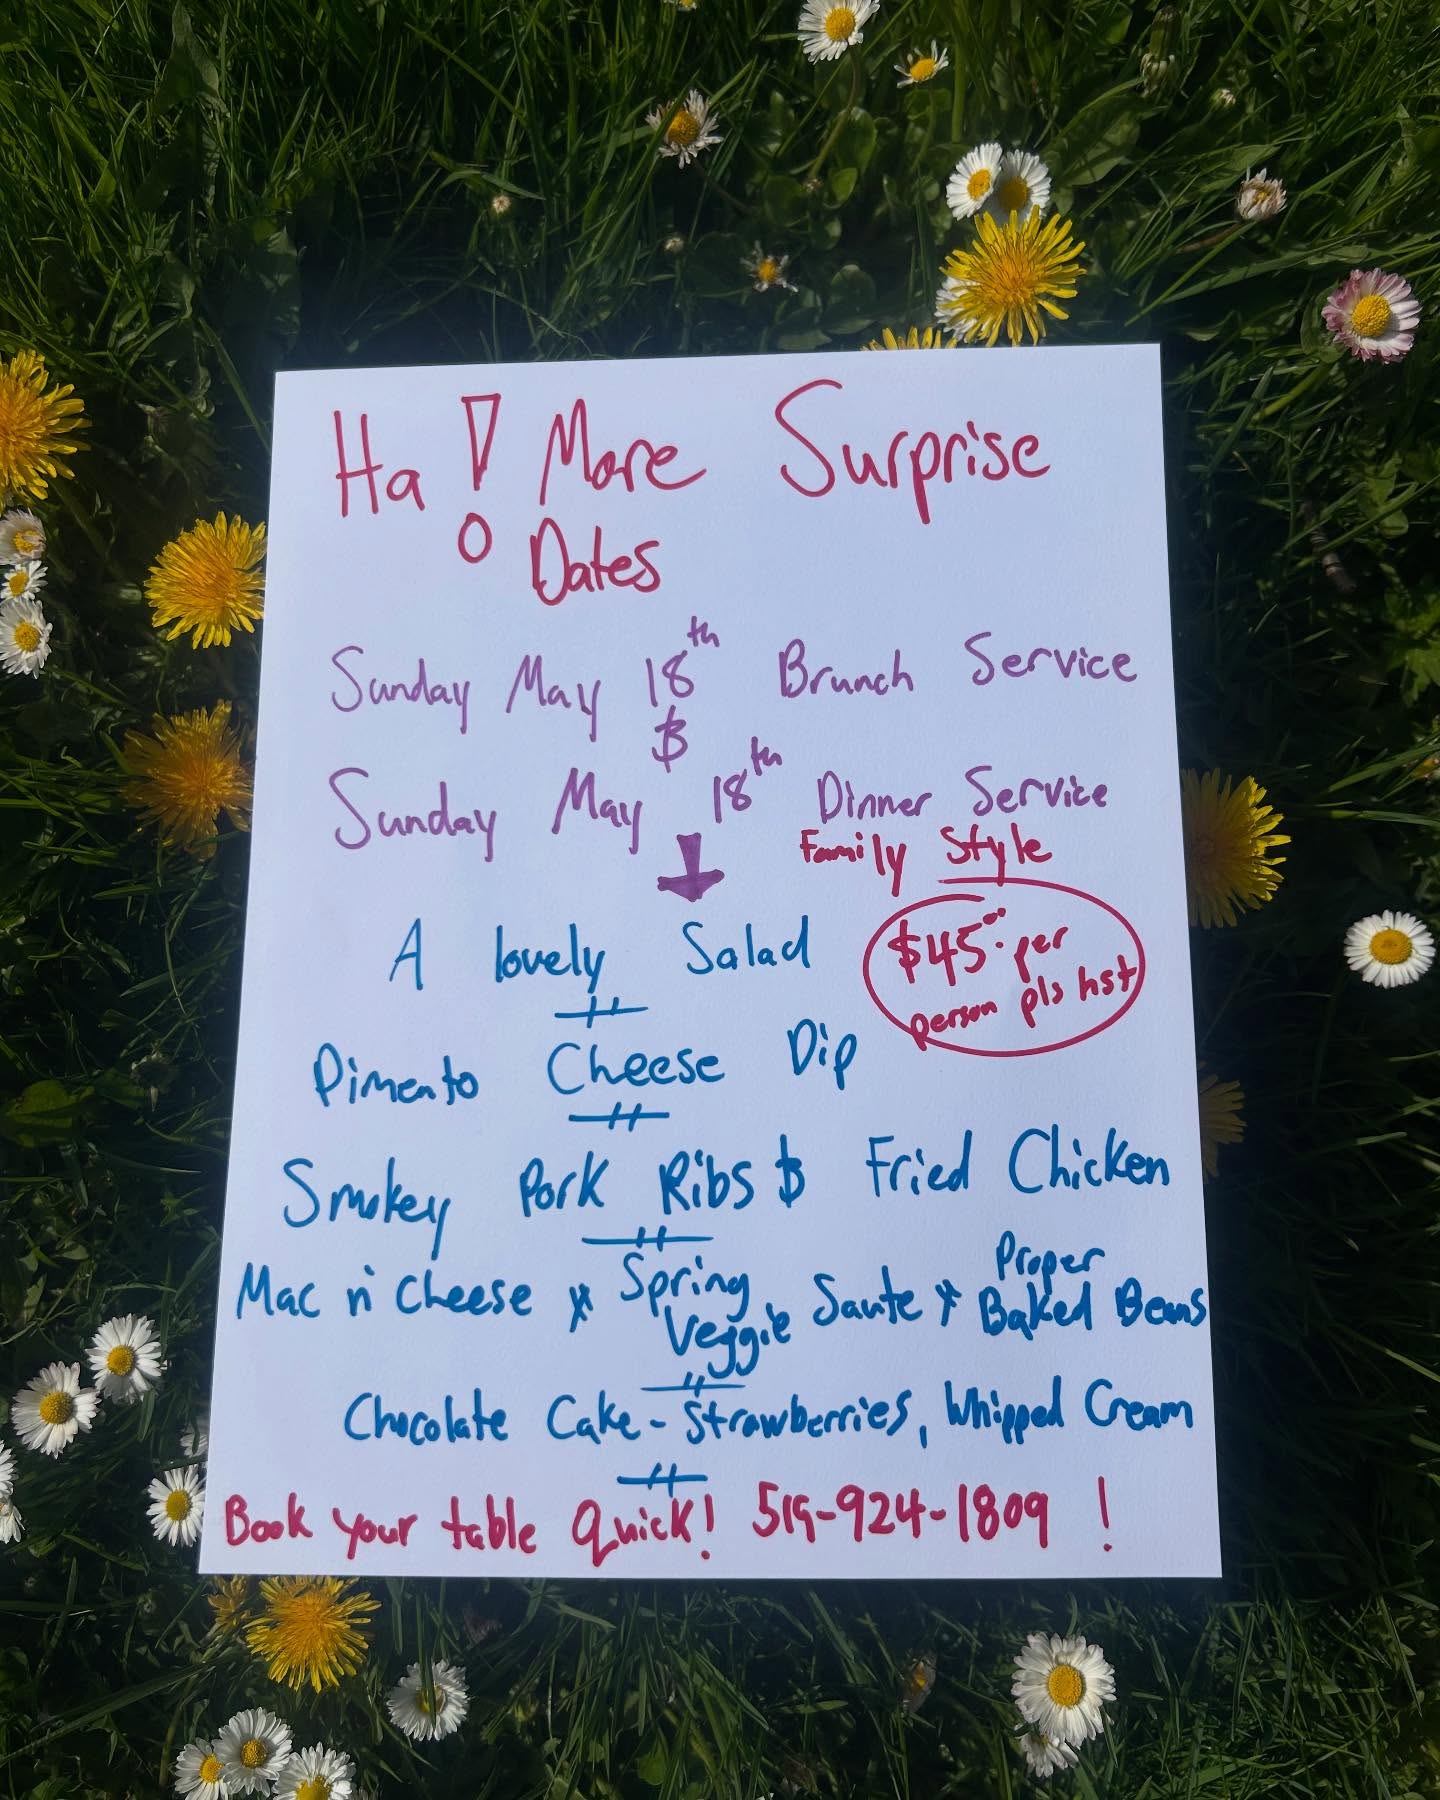 Ha! More Surprise
Dates
Sunday May 18th Brunch Service
&
Sunday May 18th Dinner Service
Family Style
A lovely Salad
$45.00 per
person pls hst
Pimento Cheese Dip
Smokey Pork Ribs & Fried Chicken
Mac n' Cheese * Spring Veggie Saute * Proper Baked Beans
Chocolate Cake - Strawberries, Whipped Cream
Book your table Quick! 519-924-1809 !